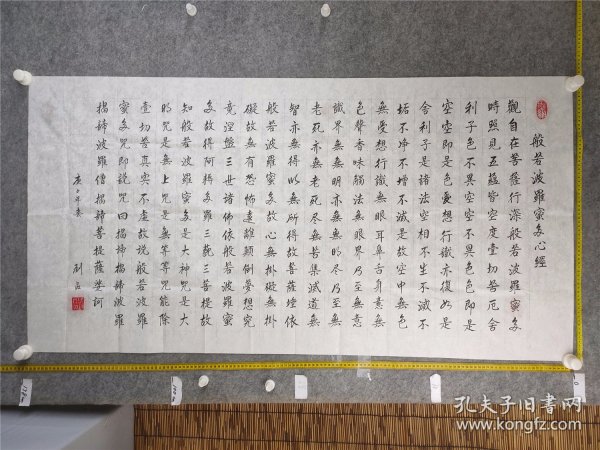 般若波羅蜜多心經
觀自在菩薩行深般若波羅蜜多
時照見五蘊皆空度壹切苦厄舍
利子色不異空空不異色色即是
空空即是色受想行識亦復如是
舍利子是諸法空相不生不滅不
垢不净不增不減是故空中無色
無受想行識無眼耳鼻舌身意無
色聲香味觸法無眼界乃至無意
識界無無明亦無無明盡乃至無
老死亦無老死盡無苦集滅道無
智亦無得以無所得故菩薩埵依
般若波羅蜜多故心無掛礙無掛
礙故無有恐怖遠離顛倒夢想究
竟涅盤三世諸佛依般若波羅蜜
多故得阿耨多羅三藐三菩提故
知般若波羅蜜多是大神咒是大
明咒是無上咒是無等等咒能除
壹切苦真实不虚故説般若波羅
蜜多咒即説咒曰揭諦揭諦波羅
揭諦波羅僧揭諦菩提薩婆訶
庚子年春
孔夫子旧書网
www.kongfz.com